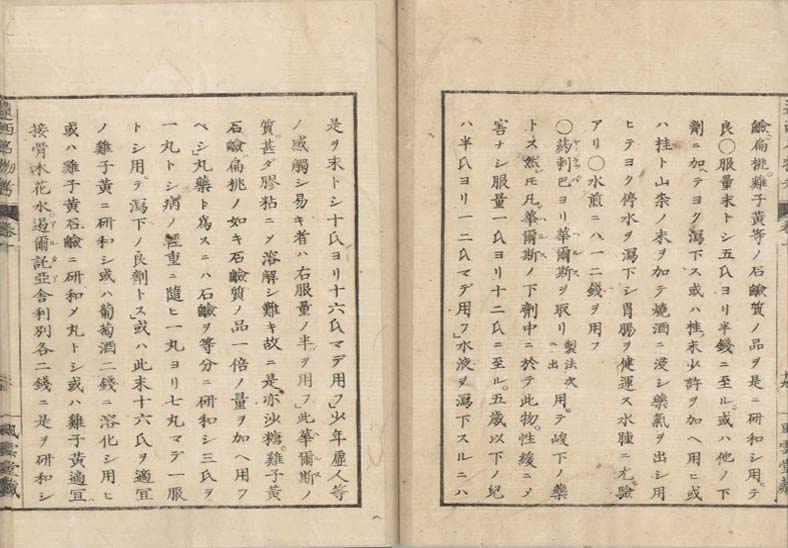 鹼。扁桃。雞子黃等ノ石鹼質ノ品ヲ是ニ研和シ用テ
良○服量末トシ五氏ヨリ半錢ニ至ル。或ハ他ノ下
劑ニ加ヘテヨク瀉下ス或ハ桂末少許ヲ加ヘ用ヒ或
ハ桂ト山柰ノ末ヲ加テ燒酒ニ浸シ藥氣ヲ出シ用
ヒテヨク停水ヲ瀉下シ胃腸ヲ健運ス水腫ニ尤驗
アリ○水煎ニハ一二錢ヲ用フ
○葯剌巴ヨリ華爾斯ヲ取リ製法次ニ出用テ峻下ノ藥
トス然𪜈凡華爾斯ノ下劑中ニ於テ此物。性緩ニメ
害ナシ服量一氏ヨリ十二氏ニ至ル。五歲以下ノ紀
ハ半氏ヨリ一二氏マデ用フ」水液ヲ瀉下スルニハ
是ヲ末トシ十氏ヨリ十六氏マデ用フ」少年虛人等
ノ感觸シ易キ者ハ右服量ノ半ヲ用フ」此華爾斯ノ
質。甚ダ膠粘ニメ溶解シ難キ故ニ是亦沙糖。雞子黃
石鹼。扁桃ノ如キ石鹼質ノ品一倍ノ量ヲ加ヘ用フ
ベシ」丸藥ト爲スニハ石鹼ヲ等分ニ研和シ三氏ヲ
一丸トシ病ノ輕重ニ隨ヒ一丸ヨリ七丸マデ一服
トシ用テ瀉下ノ良劑トス」或ハ此末十六氏ヲ適宜
ノ雞子黃ニ研和シ或ハ葡萄酒二錢ニ溶化シ用ヒ
或ハ雞子黃石鹼ニ研和メ丸トシ或ハ雞子黃適宜
接骨木花水。遏爾託亞舍利別各二錢ニ是ヲ研和シ
卷十
風雲堂藏